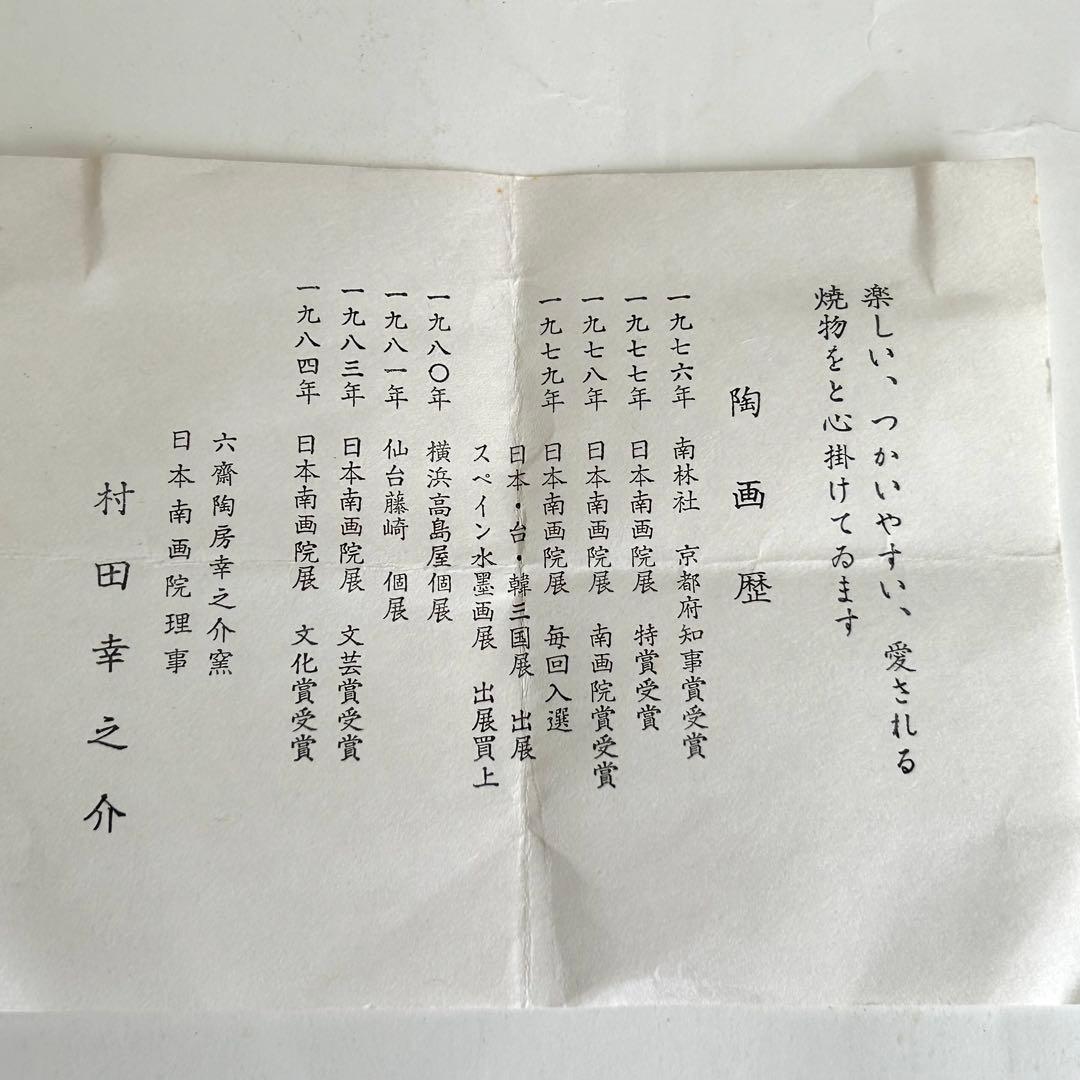 楽しい、つかいやすい、愛される
焼物をと心掛けてゐます
陶画歴
一九七六年 南林社 京都府知事賞受賞
一九七七年 日本南画院展 特賞受賞
一九七八年 日本南画院展 南画院賞受賞
一九七九年 日本南画院展 毎回入選
日本・台・韓三国展 出展
スペイン水墨画展 出展買上
一九八〇年 横浜高島屋個展
一九八一年 仙台藤崎 個展
一九八三年 日本南画院展 文芸賞受賞
一九八四年 日本南画院展 文化賞受賞
六齋陶房幸之介窯
日本南画院理事
村田幸之介